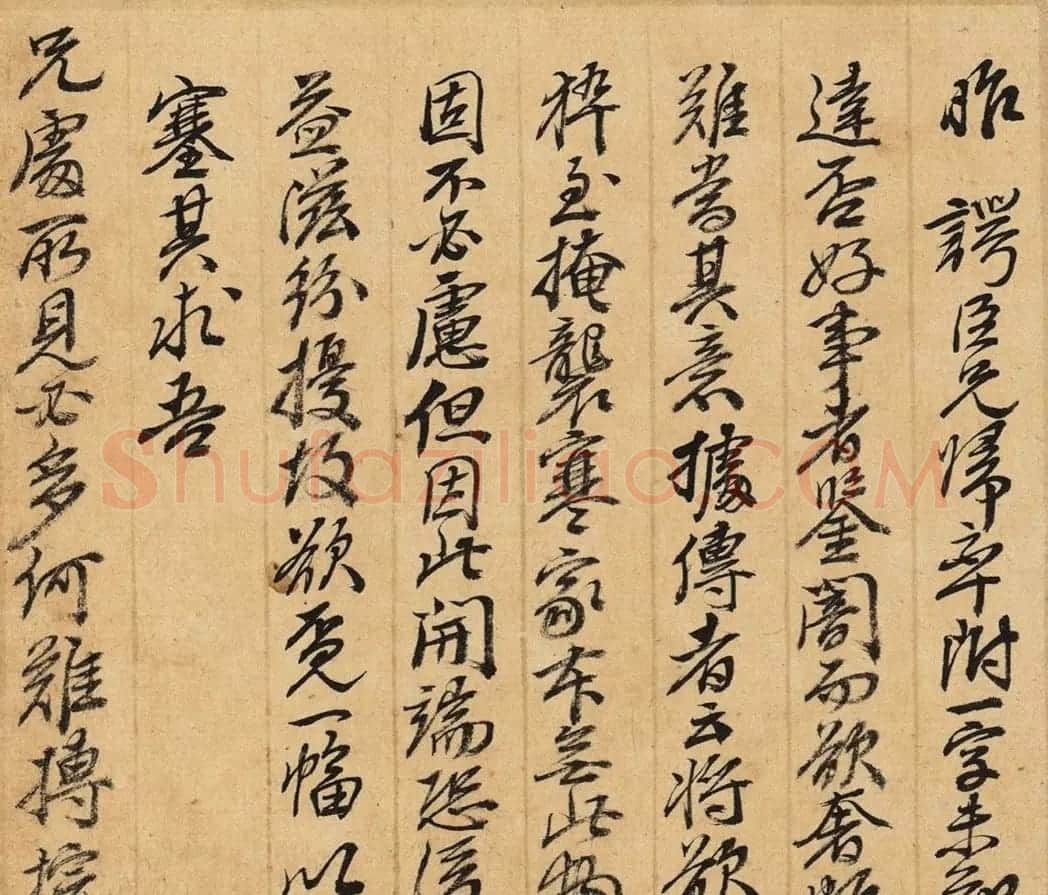 昨 諤臣兄歸卒附一字未
達否好事者鑒闇而欲奢
難當其意據傳者云將欲
猝至掩襲寒家本無此物
固不必慮但因此開端恐
益滋紛擾故欲覓一幅以
塞其求吾
兄處所見必多何難摶
shufaziliao.COM